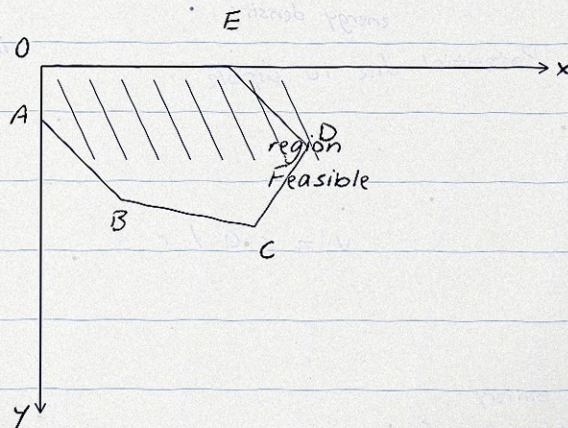 E
O
x
A
D
region
Feasible
B
C
y